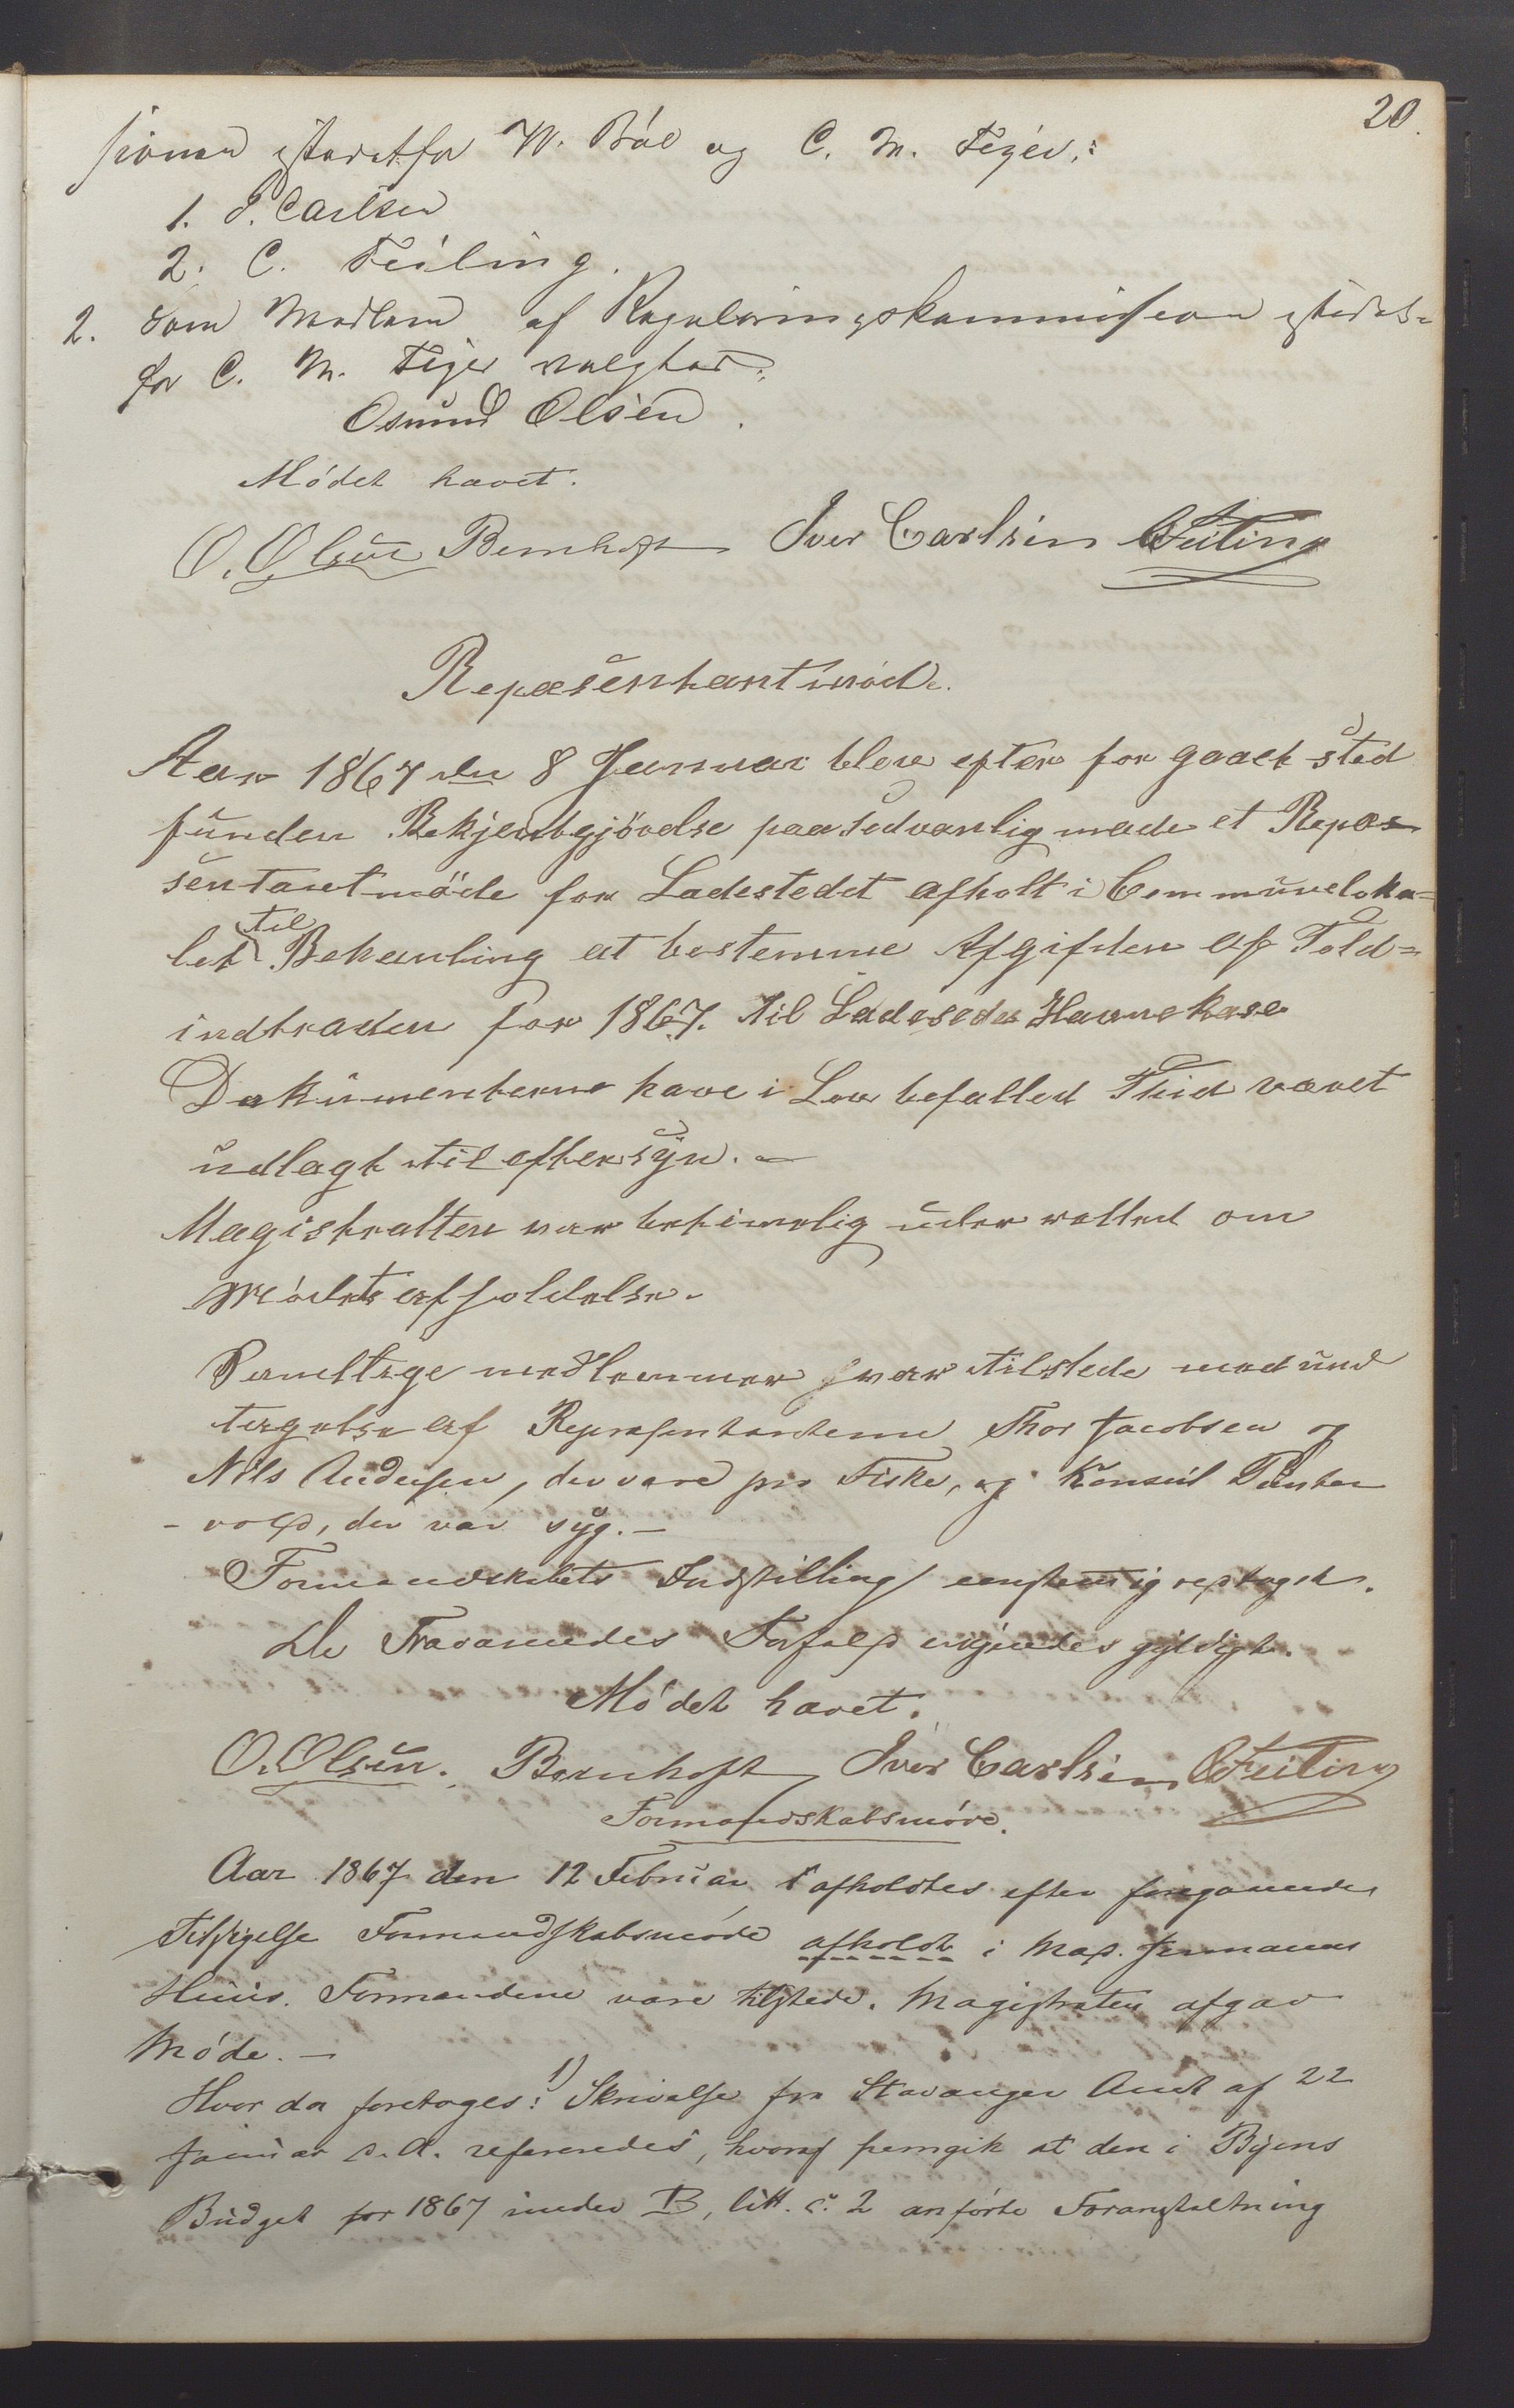 20.
sionen istedetfor W. Bøe og C. M. Fejer,:
1. I. Carlsen
2. C. Feiling.
2. Som Medlem af Reguleringskommissionen istedet-
for C. M. Fejer valgtes:
Osmund Olsen.
Mødet hævet.
O. Olsen Bernhoft Iver Carlsen CFeiling
Repæsentantmøde.
Aar 1867 den 8 Januar blev efter for gaaet sted
funden Bekjentgjövelse paa sedvanlig made et Repæs
sentantmöde for Ladestedet afholt i Communeloka=
let til Behanling at bestemme Afgiften af Told=
indtraden for 1867. til Ladesedes Havnekase
Dokumenterne have i Lov befalled Thid været
udlagt til eftersyn. –
Magistratten var betimelig underrettet om
Mødets afholdelse.
Samtlige medlemmer var tilstede med und
tagelse af Repræsentanterne Thor Jacobsen og
Nils Andersen, der vare paa Fiske, og Konsul Dunker
-vold, der var syg. –
Formandskabets Indstilling eenstemig vedtaget.
De Fraværendes Forfald erkjendes gyldigt.
Mødet hævet.
O. Olsen. Bernhoft Iver Carlsen CFeiling
Formandskabsmøde.
Aar 1867 den 12 Februar afholdtes efter foregaaende
Tilsigelse Formandskabsmøde afholdt i Mad. Jermanns
Huus. Formændene vare tilstede. Magistraten afgav
Møde. –
Hvor da foretoges: 1) Skrivelse fra Stavanger Amt af 22
Januar d. A. refereredes, hvoraf fremgik at den i Byens
Budget for 1867 under B, litt. c. 2 anførte Foranstaltning